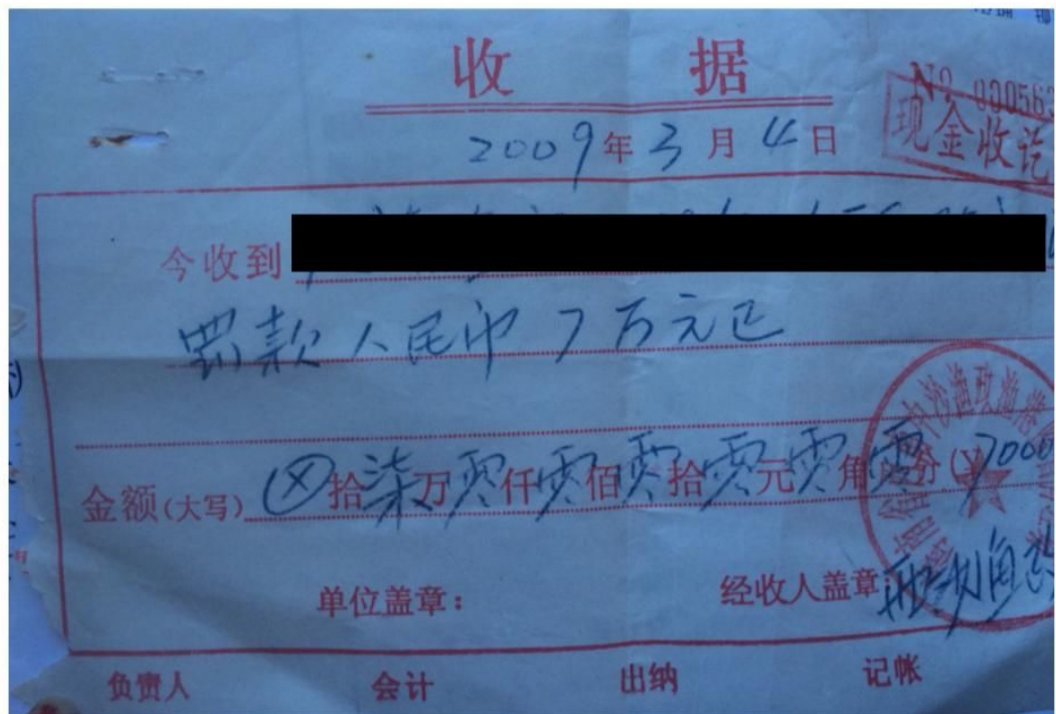 收 据
No 00056
现金收讫
2009年3月4日
今收到
罚款人民币7万元正
金额(大写) ⊗拾柒万零仟零佰零拾零元零角零分(¥)7000
单位盖章： 经收人盖章：
负责人 会计 出纳 记帐